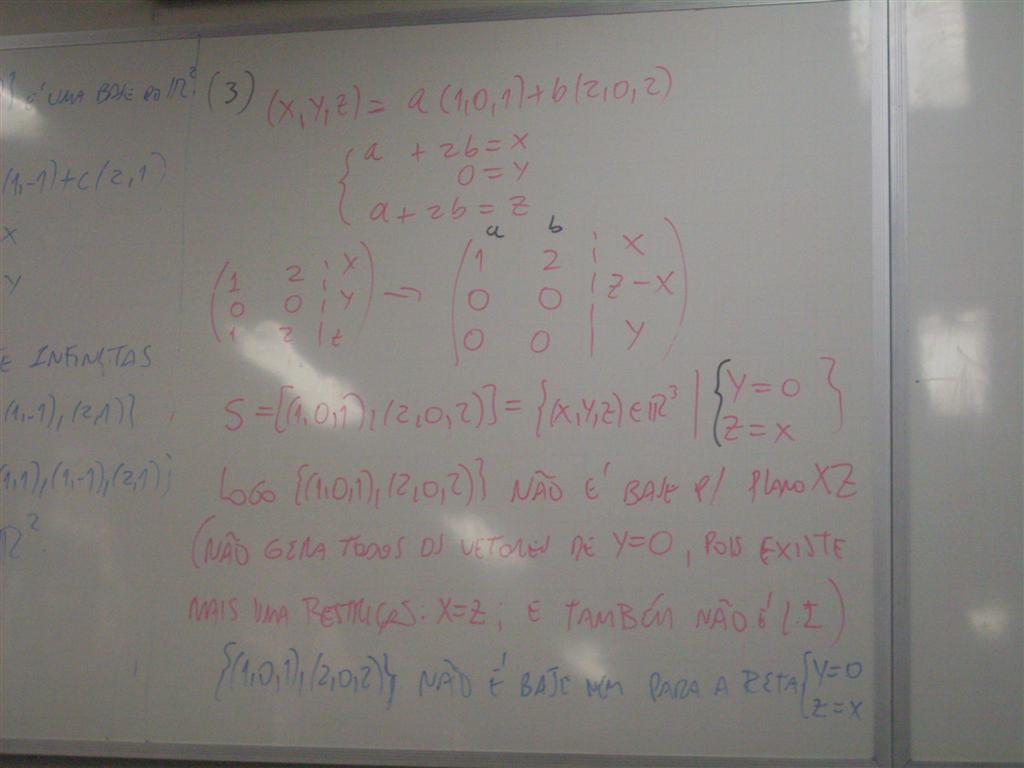 É UMA BASE DO ℝ²
(1,-1)+c(2,1)
X
Y
E INFINITAS
(1,-1),(2,1)}
(1,1),(1,-1),(2,1)
ℝ².
(3) (X,Y,Z) = a(1,0,1)+b(2,0,2)
{ a + 2b = X
0 = Y
a + 2b = Z
a b
( 1 2 | X ) → ( 1 2 | X )
( 0 0 | Y ) ( 0 0 | Z-X )
( 1 2 | Z ) ( 0 0 | Y )
S = [(1,0,1),(2,0,2)] = {(X,Y,Z) ∈ ℝ³ | { Y = 0 }
Z = X
LOGO {(1,0,1),(2,0,2)} NÃO É BASE P/ PLANO XZ
(NÃO GERA TODOS OS VETORES DE Y=0, POIS EXISTE
MAIS UMA RESTRIÇÃO: X=Z; E TAMBÉM NÃO É L.I)
{(1,0,1),(2,0,2)} NÃO É BASE NEM PARA A RETA { Y=0
Z=X